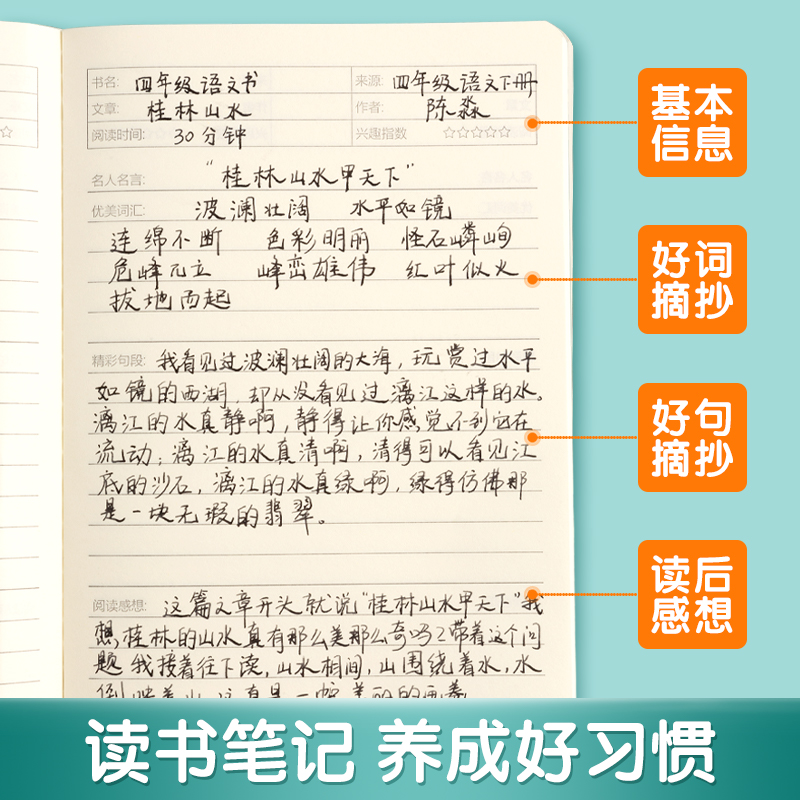 书名: 四年级语文书 来源: 四年级语文下册
文章: 桂林山水 作者: 陈淼
阅读时间: 30分钟 兴趣指数 ☆☆☆☆☆
名人名言: "桂林山水甲天下"
优美词汇: 波澜壮阔 水平如镜
连绵不断 色彩明丽 怪石嶙峋
危峰兀立 峰峦雄伟 红叶似火
拔地而起
精彩句段: 我看见过波澜壮阔的大海,玩赏过水平
如镜的西湖,却从没看见过漓江这样的水。
漓江的水真静啊,静得让你感觉不到它在
流动;漓江的水真清啊,清得可以看见江
底的沙石,漓江的水真绿啊,绿得仿佛那
是一块无瑕的翡翠。
阅读感想: 这篇文章开头就说"桂林山水甲天下"我
想,桂林的山水真有那么美那么奇吗?带着这个问
题 我接着往下读,山水相间,山围绕着水,水
倒映着山,这真是一幅美丽的画卷
基本
信息
好词
摘抄
好句
摘抄
读后
感想
读书笔记 养成好习惯